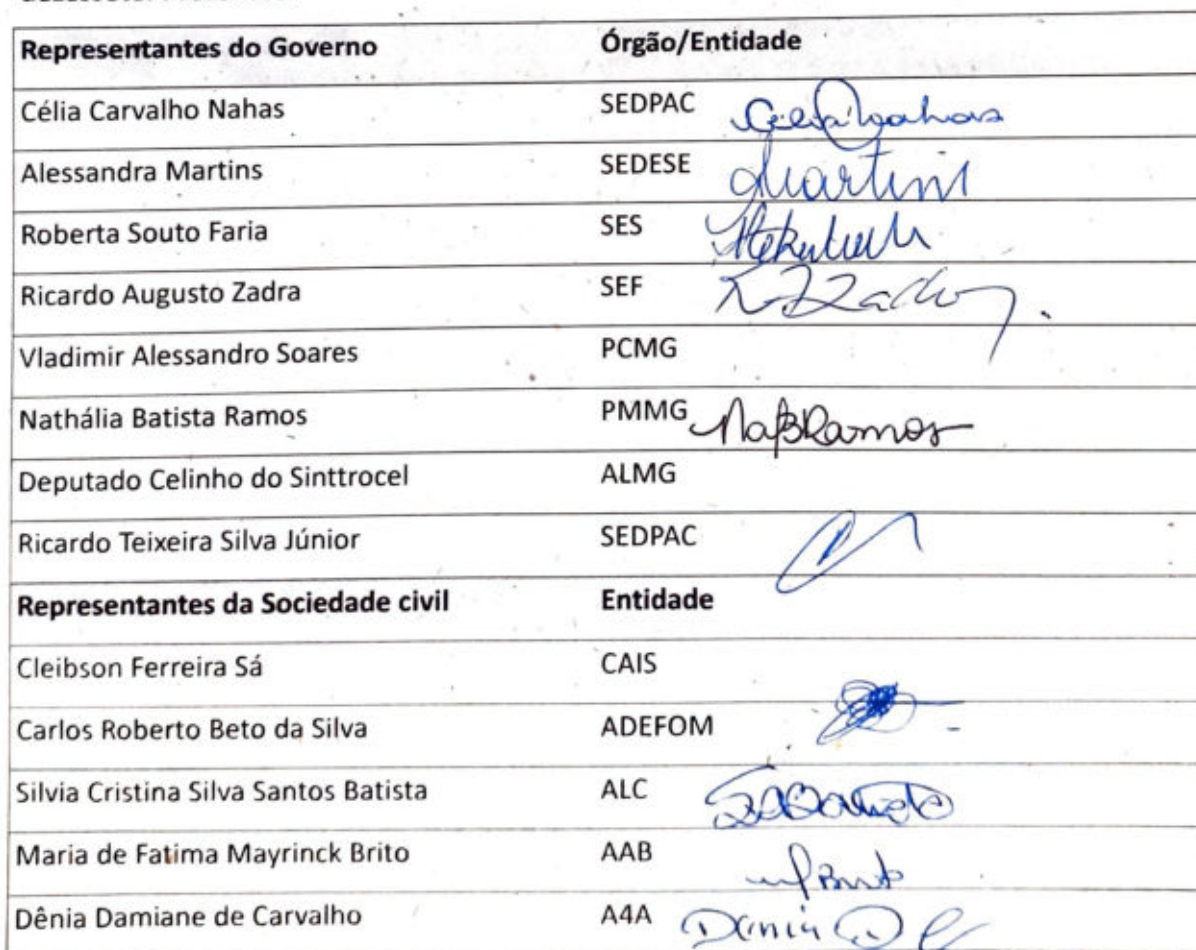 Representantes do Governo Órgão/Entidade
Célia Carvalho Nahas SEDPAC
Alessandra Martins SEDESE Martins
Roberta Souto Faria SES
Ricardo Augusto Zadra SEF
Vladimir Alessandro Soares PCMG
Nathália Batista Ramos PMMG NaBRamos
Deputado Celinho do Sinttrocel ALMG
Ricardo Teixeira Silva Júnior SEDPAC
Representantes da Sociedade civil Entidade
Cleibson Ferreira Sá CAIS
Carlos Roberto Beto da Silva ADEFOM
Silvia Cristina Silva Santos Batista ALC
Maria de Fatima Mayrinck Brito AAB
Dênia Damiane de Carvalho A4A